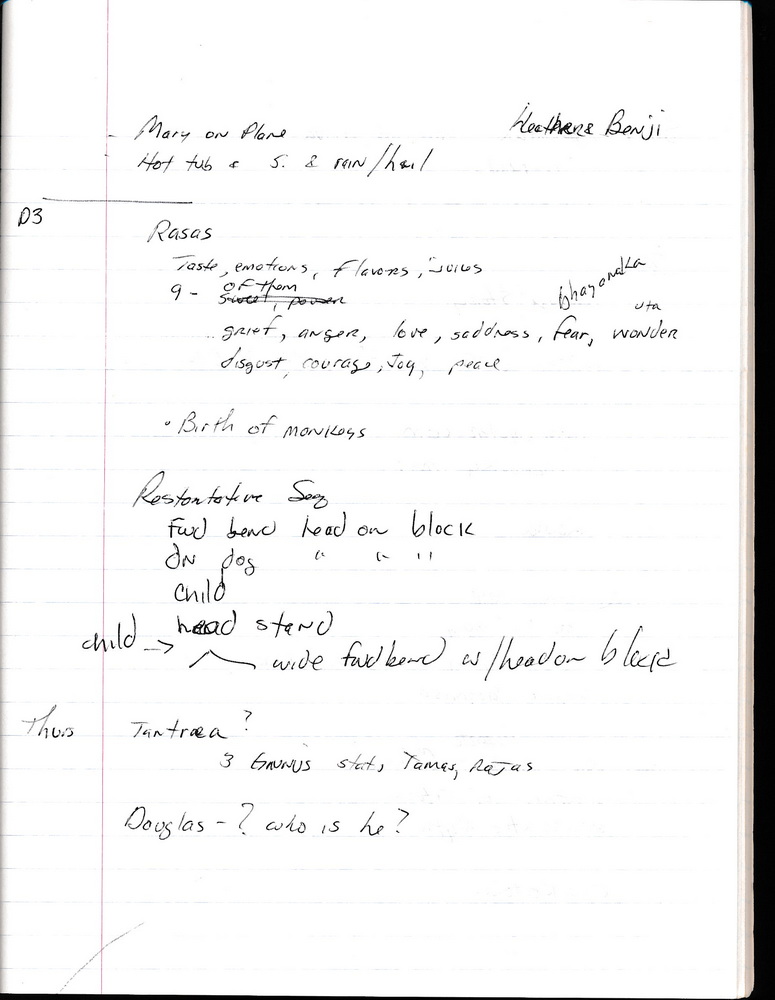 - Mary on Plane
Heather & Benji
- Hot tub & S. & rain/hail
D3
Rasas
Taste, emotions, flavors, juices
9 - of them
sweet, power
bhayanaka
uta
grief, anger, love, saddness, fear, wonder
disgust, courage, Joy, peace
• Birth of monkeys
Restortative Seq
Fwd bend head on block
dn dog " " "
child
head stand
child →
wide fwd bend w/head on block
Thurs Tantraea?
3 Gunus stats, Tamas, Rajas
Douglas - ? who is he?